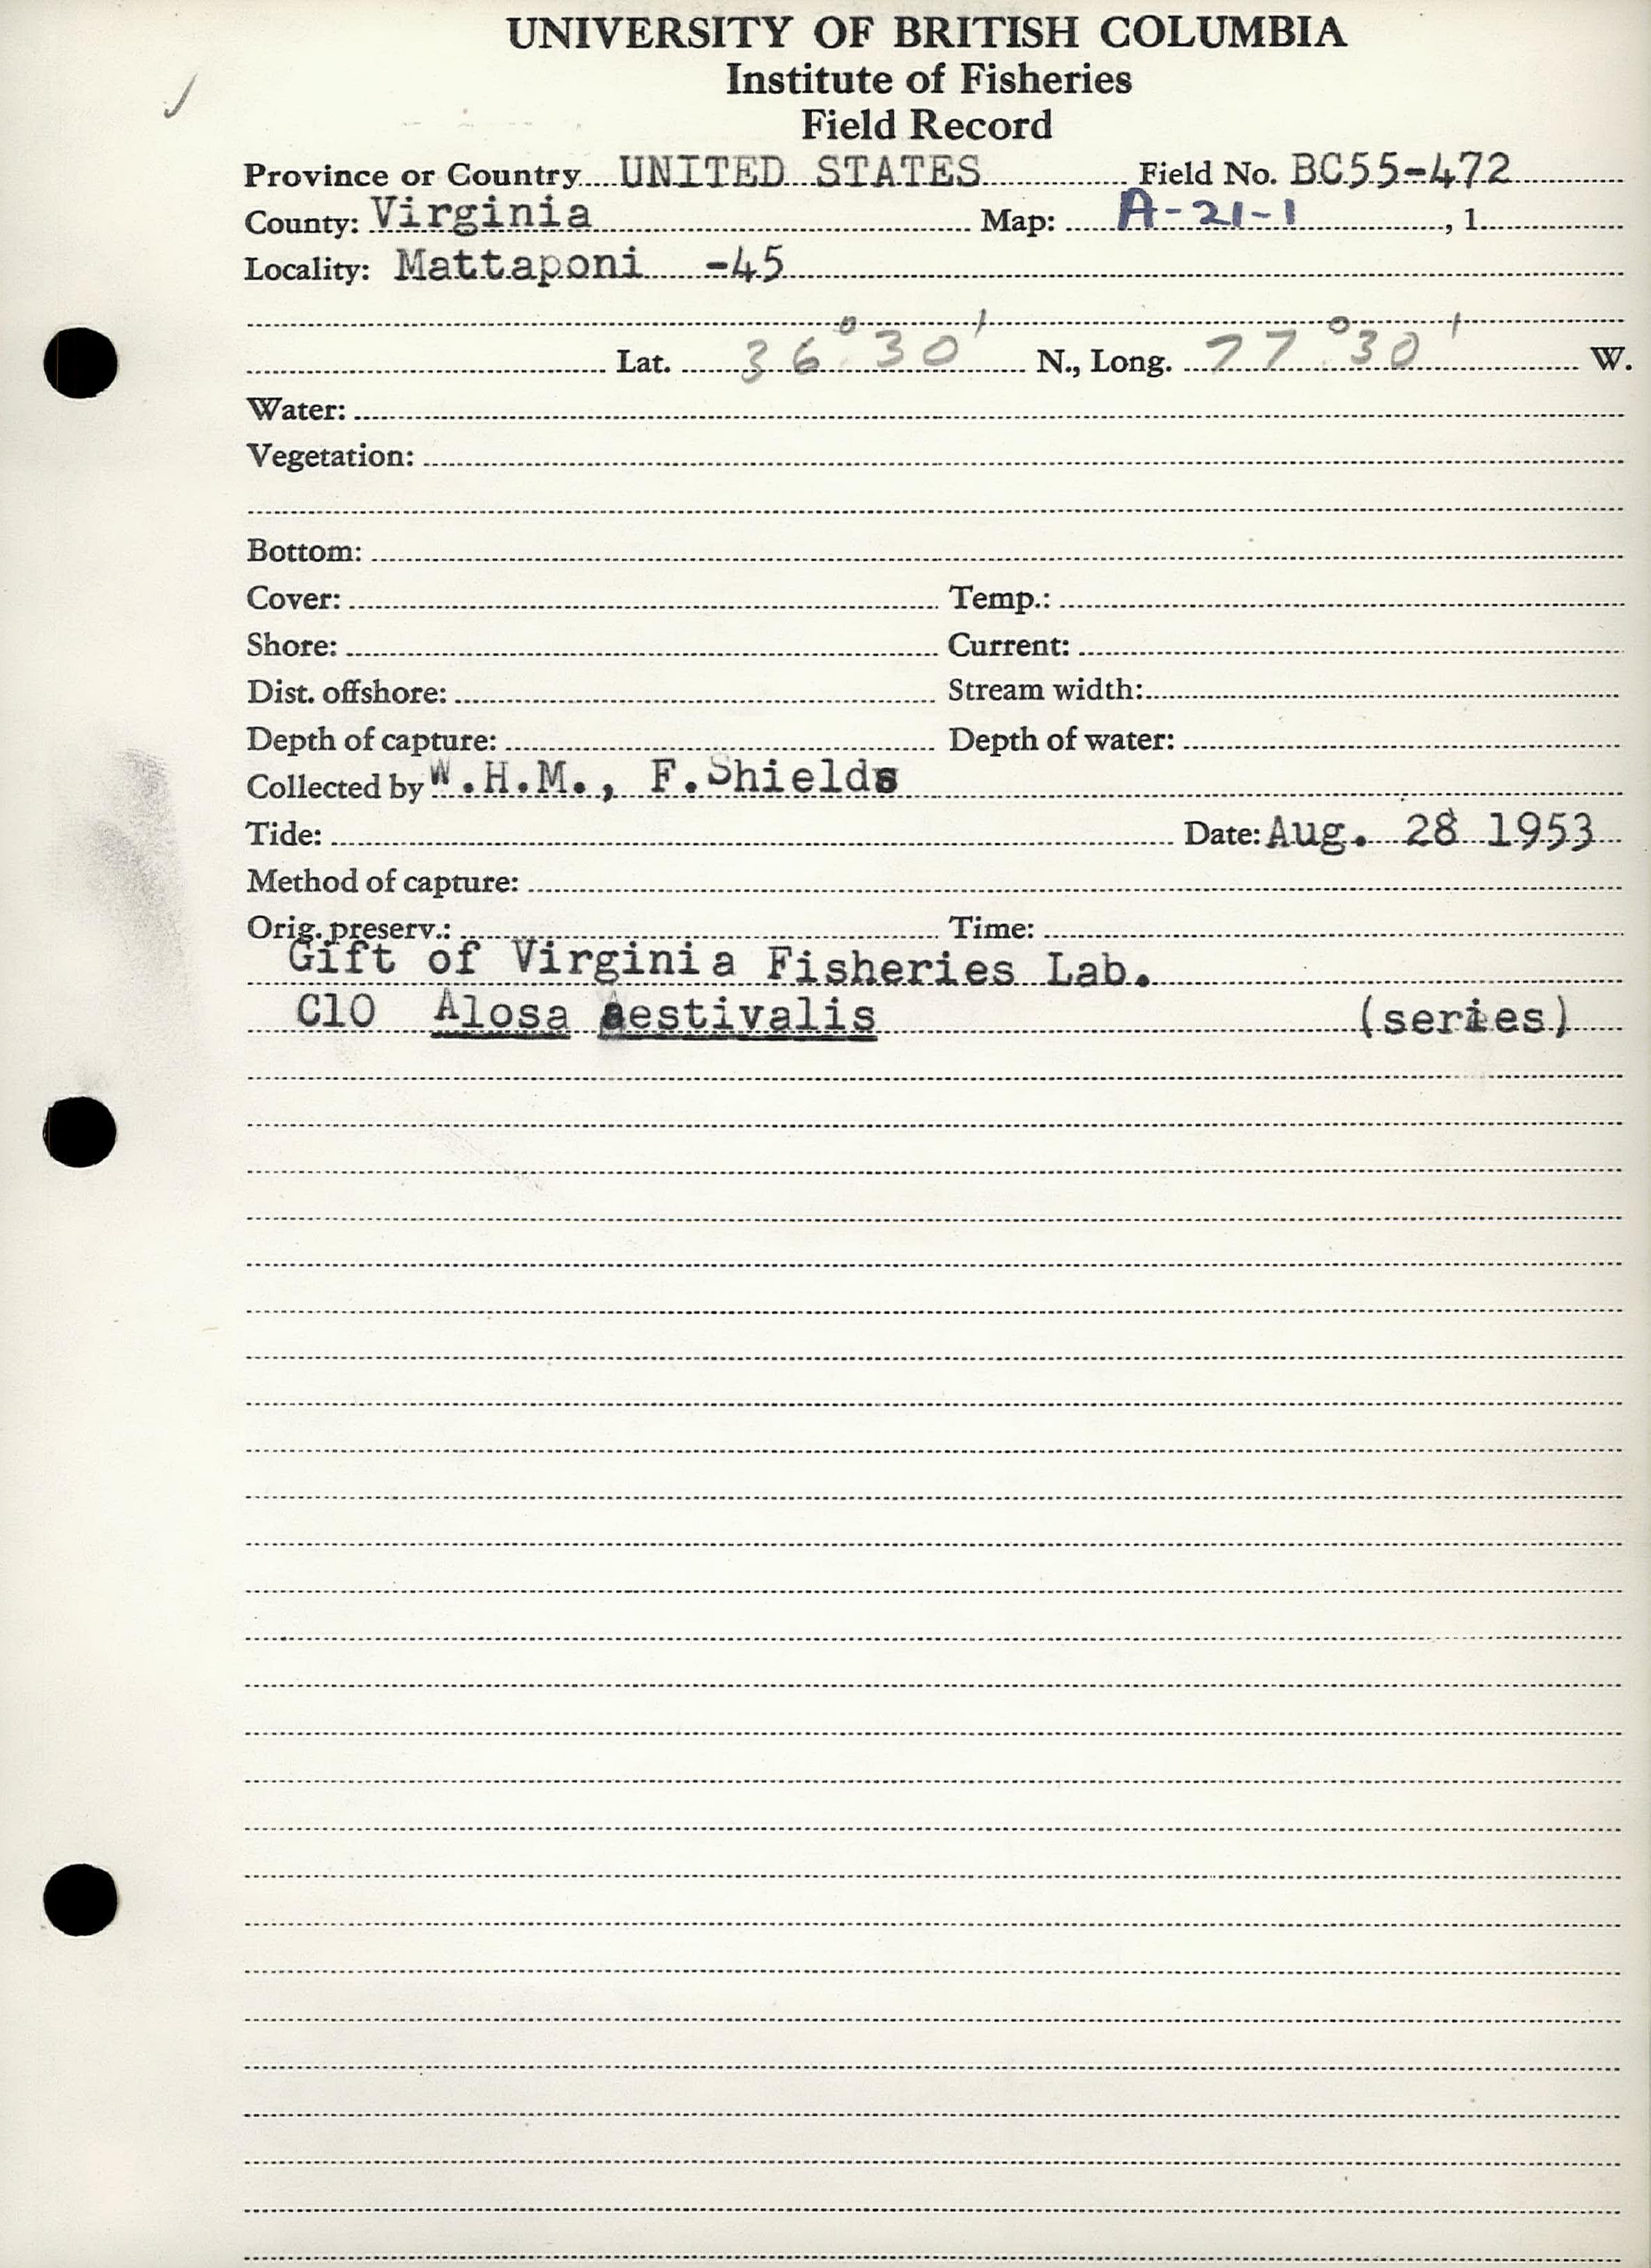 UNIVERSITY OF BRITISH COLUMBIA
Institute of Fisheries
Field Record
Province or Country UNITED STATES Field No. BC55-472
County: Virginia Map: A-21-1, 1
Locality: Mattaponi -45
Lat. 36°30' N., Long. 77°30' W.
Water:
Vegetation:
Bottom:
Cover: Temp.:
Shore: Current:
Dist. offshore: Stream width:
Depth of capture: Depth of water:
Collected by W.H.M., F.Shields
Tide: Date: Aug. 28 1953
Method of capture:
Orig. preserv.: Time:
Gift of Virginia Fisheries Lab.
C10 Alosa aestivalis (series)